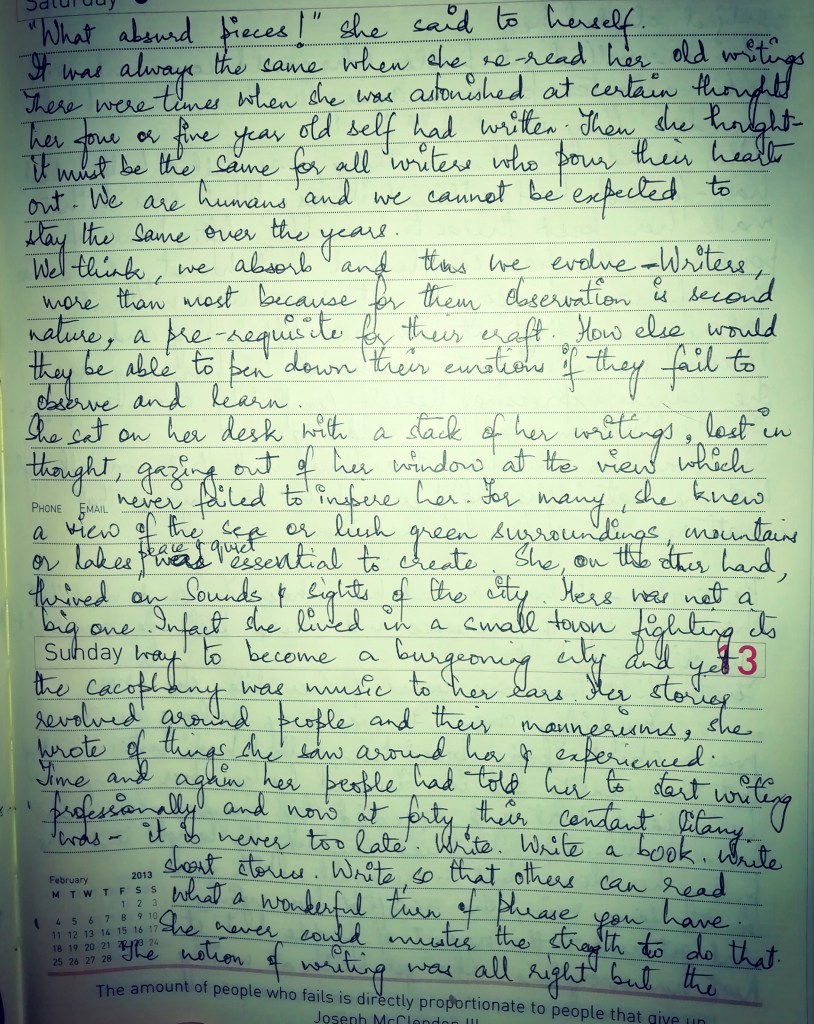 Saturday
"What absurd pieces!" she said to herself.
It was always the same when she re-read her old writings
There were times when she was astonished at certain thoughts
her four or five year old self had written. Then she thought-
it must be the same for all writers who pour their hearts
out. We are humans and we cannot be expected to
stay the same over the years.
We think, we absorb and thus we evolve - Writers,
more than most because for them observation is second
nature, a pre-requisite for their craft. How else would
they be able to pen down their emotions if they fail to
observe and learn.
She sat on her desk with a stack of her writings, lost in
thought, gazing out of her window at the view which
PHONE EMAIL never failed to inspire her. For many, she knew
a view of the sea or lush green surroundings, mountains
peace & quiet
or lakes, was essential to create. She, on the other hand,
thrived on Sounds & sights of the city. Hers was not a
big one. Infact she lived in a small town fighting its
Sunday way to become a burgeoning city and yet 13
the cacophany was music to her ears. Her stories
revolved around people and their mannerisms, she
wrote of things she saw around her & experienced.
Time and again her people had told her to start writing
professionally and now at forty, their constant litany
was - it is never too late. Write. Write a book. Write
short stories. Write, so that others can read
what a wonderful turn of phrase you have.
She never could muster the strength to do that.
The notion of writing was all right but the
February 2013
M T W T F S S
1 2 3
4 5 6 7 8 9 10
11 12 13 14 15 16 17
18 19 20 21 22 23 24
25 26 27 28
The amount of people who fails is directly proportionate to people that give up
Joseph McClendon III